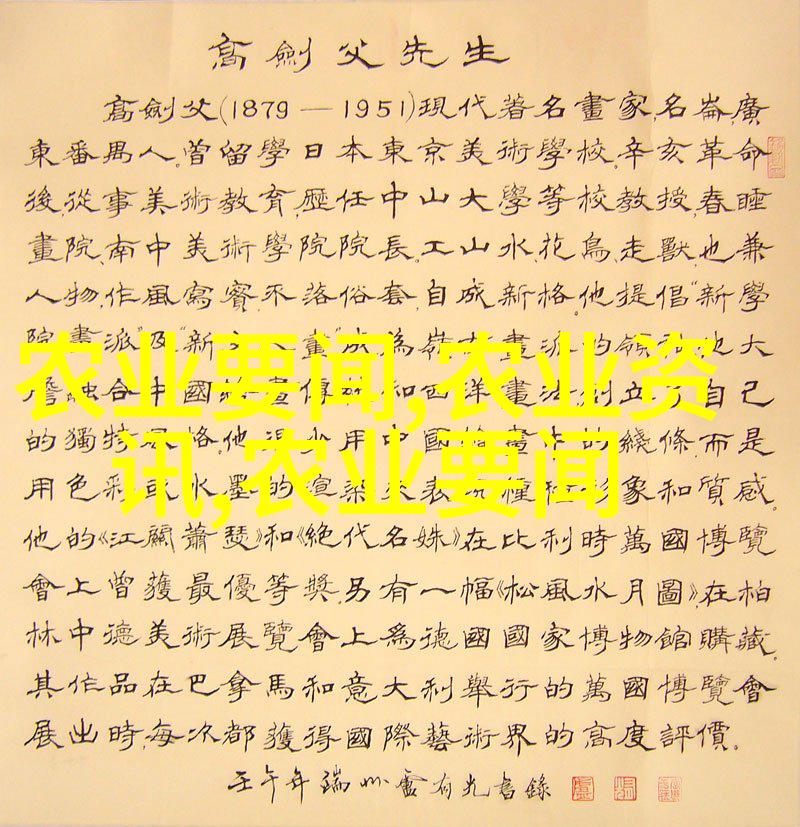 高劍父先生
高劍父(1879—1951)現代著名畫家,名崙,廣
東番禺人。曾留學日本東京美術學校。辛亥革命
後,從事美術教育,歷任中山大學等校教授,春睡
畫院、南中美術學院院長。工山水、花鳥、走獸,也兼
人物,作風寫實,不落俗套,自成新格。他提倡“新學
院畫派”及“新 畫”成為嶺 畫派的領 他大
膽融合中國 畫傳 和西洋畫法,創立了自己
的獨特風格。他 用中國 畫 的綫條,而是
用色彩或水墨的渲染來表現 種 象和質感。
他的《江關蕭瑟》和《絕代名姝》在比利時萬國博覽
會上曾獲最優等獎,另有一幅《松風水月圖》,在柏
林中德美術展覽會上為德國國家博物館購藏。
其作品在巴拿馬和意大利舉行的萬國博覽會
展出時,每次都獲得國際藝術界的高度評價。
壬午年端州盧有光書錄
农业要闻,农业资
讯,农业要闻